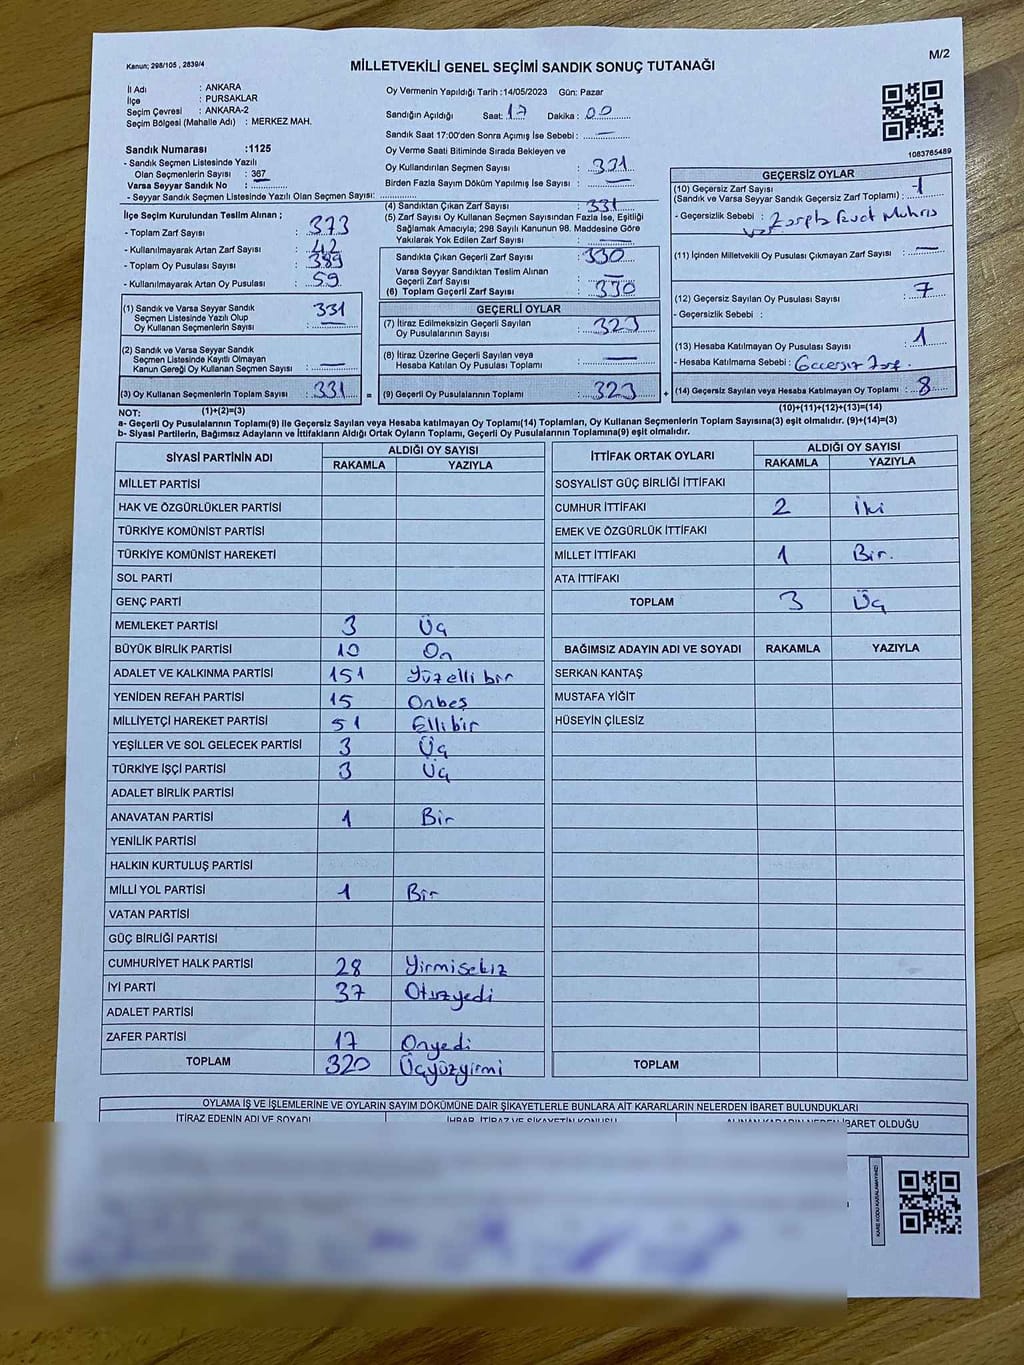 M/2
Kanun; 298/105 , 2839/4
MİLLETVEKİLİ GENEL SEÇİMİ SANDIK SONUÇ TUTANAĞI
İl Adı : ANKARA
İlçe : PURSAKLAR
Seçim Çevresi : ANKARA-2
Seçim Bölgesi (Mahalle Adı) : MERKEZ MAH.
Sandık Numarası :1125
- Sandık Seçmen Listesinde Yazılı
Olan Seçmenlerin Sayısı : 367
Varsa Seyyar Sandık No :
- Seyyar Sandık Seçmen Listesinde Yazılı Olan Seçmen Sayısı:
İlçe Seçim Kurulundan Teslim Alınan ;
- Toplam Zarf Sayısı : 373
- Kullanılmayarak Artan Zarf Sayısı : 42
- Toplam Oy Pusulası Sayısı : 389
- Kullanılmayarak Artan Oy Pusulası : 59
(1) Sandık ve Varsa Seyyar Sandık
Seçmen Listesinde Yazılı Olup
Oy Kullanan Seçmenlerin Sayısı : 331
(2) Sandık ve Varsa Seyyar Sandık
Seçmen Listesinde Kayıtlı Olmayan
Kanun Gereği Oy Kullanan Seçmen Sayısı : —
(3) Oy Kullanan Seçmenlerin Toplam Sayısı : 331 =
(1)+(2)=(3)
Oy Vermenin Yapıldığı Tarih :14/05/2023 Gün: Pazar
Sandığın Açıldığı Saat: 17 Dakika : 00
Sandık Saat 17:00'den Sonra Açımış İse Sebebi : —
Oy Verme Saati Bitiminde Sırada Bekleyen ve
Oy Kullandırılan Seçmen Sayısı : 331
Birden Fazla Sayım Döküm Yapılmış İse Sayısı : —
(4) Sandıktan Çıkan Zarf Sayısı : 331
(5) Zarf Sayısı Oy Kullanan Seçmen Sayısından Fazla İse, Eşitliği
Sağlamak Amacıyla; 298 Sayılı Kanunun 98. Maddesine Göre
Yakılarak Yok Edilen Zarf Sayısı : —
Sandıkta Çıkan Geçerli Zarf Sayısı : 330
Varsa Seyyar Sandıktan Teslim Alınan
Geçerli Zarf Sayısı : —
(6) Toplam Geçerli Zarf Sayısı : 330
GEÇERLİ OYLAR
(7) İtiraz Edilmeksizin Geçerli Sayılan
Oy Pusulalarının Sayısı : 323
(8) İtiraz Üzerine Geçerli Sayılan veya
Hesaba Katılan Oy Pusulası Toplamı : —
(9) Geçerli Oy Pusulalarının Toplamı : 323 +
1083765489
GEÇERSİZ OYLAR
(10) Geçersiz Zarf Sayısı
(Sandık ve Varsa Seyyar Sandık Geçersiz Zarf Toplamı) : 1
- Geçersizlik Sebebi :
(11) İçinden Milletvekili Oy Pusulası Çıkmayan Zarf Sayısı : —
(12) Geçersiz Sayılan Oy Pusulası Sayısı : 7
- Geçersizlik Sebebi :
(13) Hesaba Katılmayan Oy Pusulası Sayısı : 1
- Hesaba Katılmama Sebebi : Geçersiz Zarf.
(14) Geçersiz Sayılan veya Hesaba Katılmayan Oy Toplamı : 8
(10)+(11)+(12)+(13)=(14)
NOT:
a- Geçerli Oy Pusulalarının Toplamı(9) ile Geçersiz Sayılan veya Hesaba katılmayan Oy Toplamı(14) Toplamları, Oy Kullanan Seçmenlerin Toplam Sayısına(3) eşit olmalıdır. (9)+(14)=(3)
b- Siyasi Partilerin, Bağımsız Adayların ve İttifakların Aldığı Ortak Oyların Toplamı, Geçerli Oy Pusulalarının Toplamına(9) eşit olmalıdır.
SİYASİ PARTİNİN ADI ALDIĞI OY SAYISI
RAKAMLA YAZIYLA
MİLLET PARTİSİ
HAK VE ÖZGÜRLÜKLER PARTİSİ
TÜRKİYE KOMÜNİST PARTİSİ
TÜRKİYE KOMÜNİST HAREKETİ
SOL PARTİ
GENÇ PARTİ
MEMLEKET PARTİSİ 3 Üç
BÜYÜK BİRLİK PARTİSİ 10 On
ADALET VE KALKINMA PARTİSİ 151 Yüzelli bir
YENİDEN REFAH PARTİSİ 15 Onbeş
MİLLİYETÇİ HAREKET PARTİSİ 51 Ellibir
YEŞİLLER VE SOL GELECEK PARTİSİ 3 Üç
TÜRKİYE İŞÇİ PARTİSİ 3 Üç
ADALET BİRLİK PARTİSİ
ANAVATAN PARTİSİ 1 Bir
YENİLİK PARTİSİ
HALKIN KURTULUŞ PARTİSİ
MİLLİ YOL PARTİSİ 1 Bir
VATAN PARTİSİ
GÜÇ BİRLİĞİ PARTİSİ
CUMHURİYET HALK PARTİSİ 28 Yirmisekiz
İYİ PARTİ 37 Otuzyedi
ADALET PARTİSİ
ZAFER PARTİSİ 17 Onyedi
TOPLAM 320 Üçyüzyirmi
İTTİFAK ORTAK OYLARI ALDIĞI OY SAYISI
RAKAMLA YAZIYLA
SOSYALİST GÜÇ BİRLİĞİ İTTİFAKI
CUMHUR İTTİFAKI 2 İki
EMEK VE ÖZGÜRLÜK İTTİFAKI
MİLLET İTTİFAKI 1 Bir.
ATA İTTİFAKI
TOPLAM 3 Üç
BAĞIMSIZ ADAYIN ADI VE SOYADI RAKAMLA YAZIYLA
SERKAN KANTAŞ
MUSTAFA YİĞİT
HÜSEYİN ÇİLESİZ
TOPLAM
OYLAMA İŞ VE İŞLEMLERİNE VE OYLARIN SAYIM DÖKÜMÜNE DAİR ŞİKAYETLERLE BUNLARA AİT KARARLARIN NELERDEN İBARET BULUNDUKLARI
İTİRAZ EDENİN ADI VE SOYADI İHBAR, İTİRAZ VE ŞİKAYETİN KONUSU ALINAN KARARIN NEDEN İBARET OLDUĞU
KARE KODU KARALAMAYINIZ!